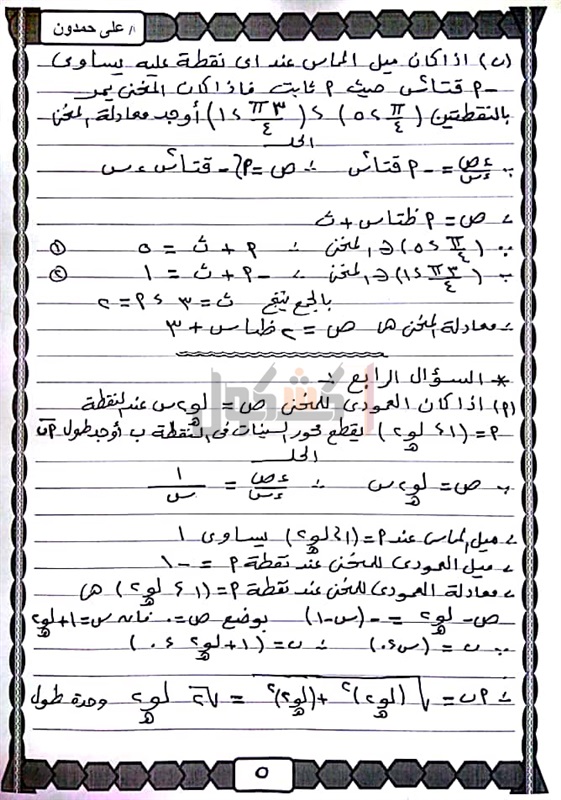 ا/ على حمدون
(ب) اذا كان ميل المماس عند اى نقطة عليه يساوى
- م قتا٢س حيث م ثابت فاذا كان المنحنى يمر
بالنقطتين (π/٤ ، ٥) ، (٣π/٤ ، ١) أوجد معادلة المنحنى
الحل
∵ ءص/ءس = - م قتا٢س ∴ ص = م∫ - قتا٢س ءس
∴ ص = م ظتاس + ث
∵ (π/٤ ، ٥) ∈ المنحنى ∴ م + ث = ٥ ①
∵ (٣π/٤ ، ١) ∈ المنحنى ∴ - م + ث = ١ ②
بالجمع ينتج ث = ٣ ، م = ٢
∴ معادلة المنحنى هى ص = ٢ ظتاس + ٣
* السؤال الرابع :-
كشكول
(م) اذا كان العمودى للمنحنى ص = لو_هـ ٢س عند النقطة
م = (١ ، لو_هـ ٢) يقطع محور السينات فى النقطة ب أوجد طول م ب
الحل
∵ ص = لو_هـ ٢س ∴ ءص/ءس = ١/س
∴ ميل المماس عند م = (١ ، لو_هـ ٢) يساوى ١
∴ ميل العمودى للمنحنى عند نقطة م = -١
∴ معادلة العمودى للمنحنى عند نقطة م = (١ ، لو_هـ ٢) هى
ص - لو_هـ ٢ = - (س - ١) بوضع ص = ٠ فانه س = ١ + لو_هـ ٢
∵ ب = (س ، ٠) ∴ ب = (١ + لو_هـ ٢ ، ٠)
∴ م ب = √((لو_هـ ٢)² + (لو_هـ ٢)²) = √٢ لو_هـ ٢ وحدة طول
٥